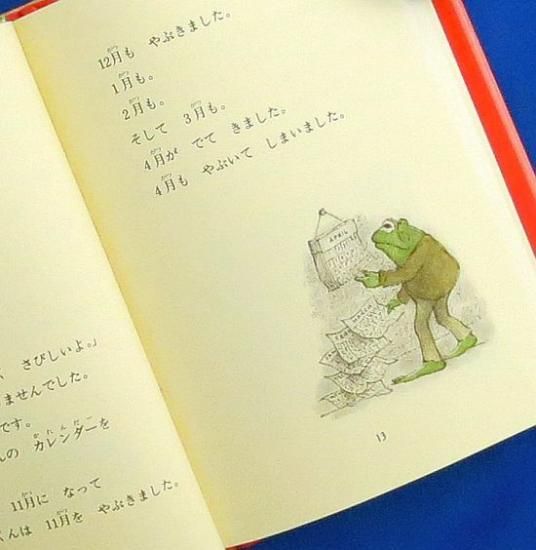 さびしいよ。」
ませんでした。
です。
んの カレンダーを
11月に なって
くんは 11月を やぶきました。
12月も やぶきました。
1月も。
2月も。
そして 3月も。
4月が でて きました。
4月も やぶいて しまいました。
APRIL
MARCH
13